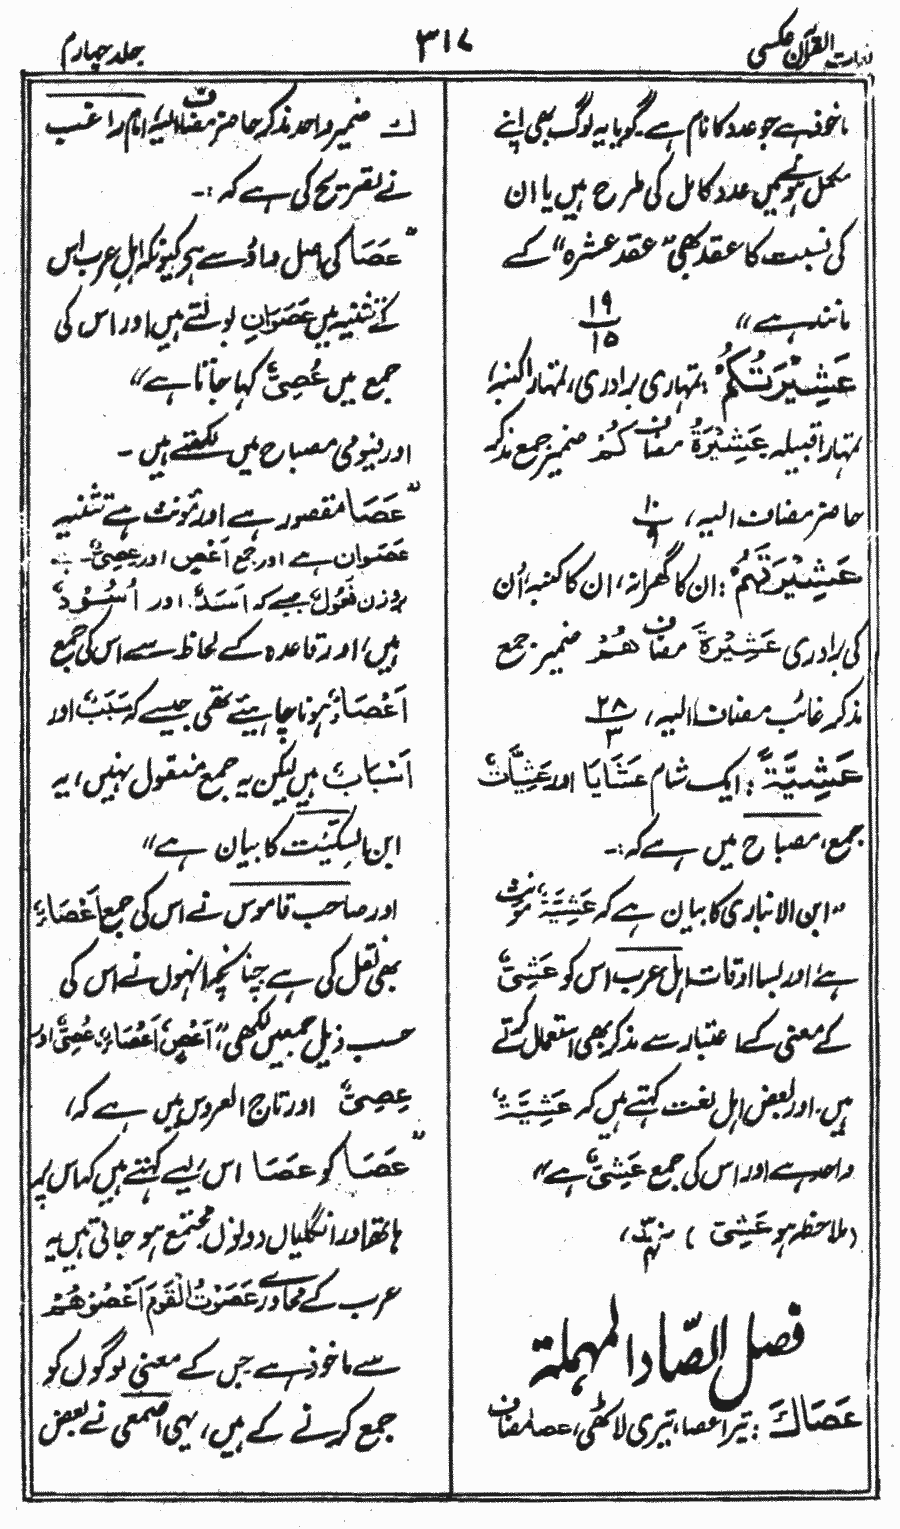 لغات القرآن عکسی
۳۱۷
جلد چہارم
ماخوذ ہے جو عدد کا نام ہے۔ گویا یہ لوگ بھی اپنے
مکمل ہونے میں عدد کامل کی طرح ہیں یا ان
کی نسبت کا عقد بھی "عقد عشرہ" کے
مانند ہے" ۱۹/۱۵
عَشِيْرَتُكُمْ: تمہاری برادری، تمہارا کنبہ،
تمہارا قبیلہ عَشِيْرَةُ مضاف كُمْ ضمیر جمع مذکر
حاضر مضاف الیہ، ۱۰/۹
عَشِيْرَتَهُمْ: ان کا گھرانہ، ان کا کنبہ، اُن
کی برادری عَشِيْرَةَ مضاف هُمْ ضمیر جمع
مذکر غائب مضاف الیہ، ۲۸/۳
عَشِيَّةً: ایک شام عَشَايَا اور عَشِيَّاتٌ
جمع، مصباح میں ہے کہ:۔
"ابن الانباری کا بیان ہے کہ عَشِيَّةٌ مؤنث
ہے، اور بسا اوقات اہل عرب اس کو عَشِيٌّ
کے معنی کے اعتبار سے مذکر بھی استعمال کرتے
ہیں۔ اور بعض اہل لغت کہتے ہیں کہ عَشِيَّةٌ
واحد ہے اور اس کی جمع عَشِيٌّ ہے"
(ملاحظہ ہو عَشِيّ)
فصل الصّاد المہملۃ
عَصَاكَ: تیرا عصا، تیری لاٹھی، عصا مضاف
كَ ضمیر واحد مذکر حاضر مضاف الیہ، امام راغب
نے تصریح کی ہے کہ:۔
"عَصَا کی اصل واؤ سے ہے کیونکہ اہل عرب اس
کے تثنیہ میں عَصَوَانِ بولتے ہیں اور اس کی
جمع میں عُصِيٌّ کہا جاتا ہے"
اور فیومی مصباح میں لکھتے ہیں۔
"عَصَا مقصور ہے اور مؤنث ہے تثنیہ
عَصَوان ہے اور جمع اَعْصٍ اور عِصِيٌّ۔
بروزن فُعُوْلٌ جیسے کہ اَسَدٌ اور اُسُوْدٌ
ہیں، اور قاعدہ کے لحاظ سے اس کی جمع
اَعْصَاءٌ ہونا چاہیئے تھی جیسے کہ سَبَبٌ اور
اَسْبَابٌ ہیں لیکن یہ جمع منقول نہیں، یہ
ابن السکیت کا بیان ہے"
اور صاحب قاموس نے اس کی جمع اَعْصَاءٌ
بھی نقل کی ہے چنانچہ انہوں نے اس کی
حسب ذیل جمعیں لکھی ہیں، اَعْصٍ، اَعْصَاءٌ، عُصِيٌّ، اور
عِصِيٌّ اور تاج العروس میں ہے کہ،
"عَصَا کو عَصَا اس لیے کہتے ہیں کہ اس پر
ہاتھ اور انگلیاں دونوں مجتمع ہو جاتی ہیں یہ
عرب کے محاورے عَصَوْتُ الْقَوْمَ اَعْصُوْهُمْ
سے ماخوذ ہے جس کے معنی لوگوں کو
جمع کرنے کے ہیں، یہی اصمعی نے بعض